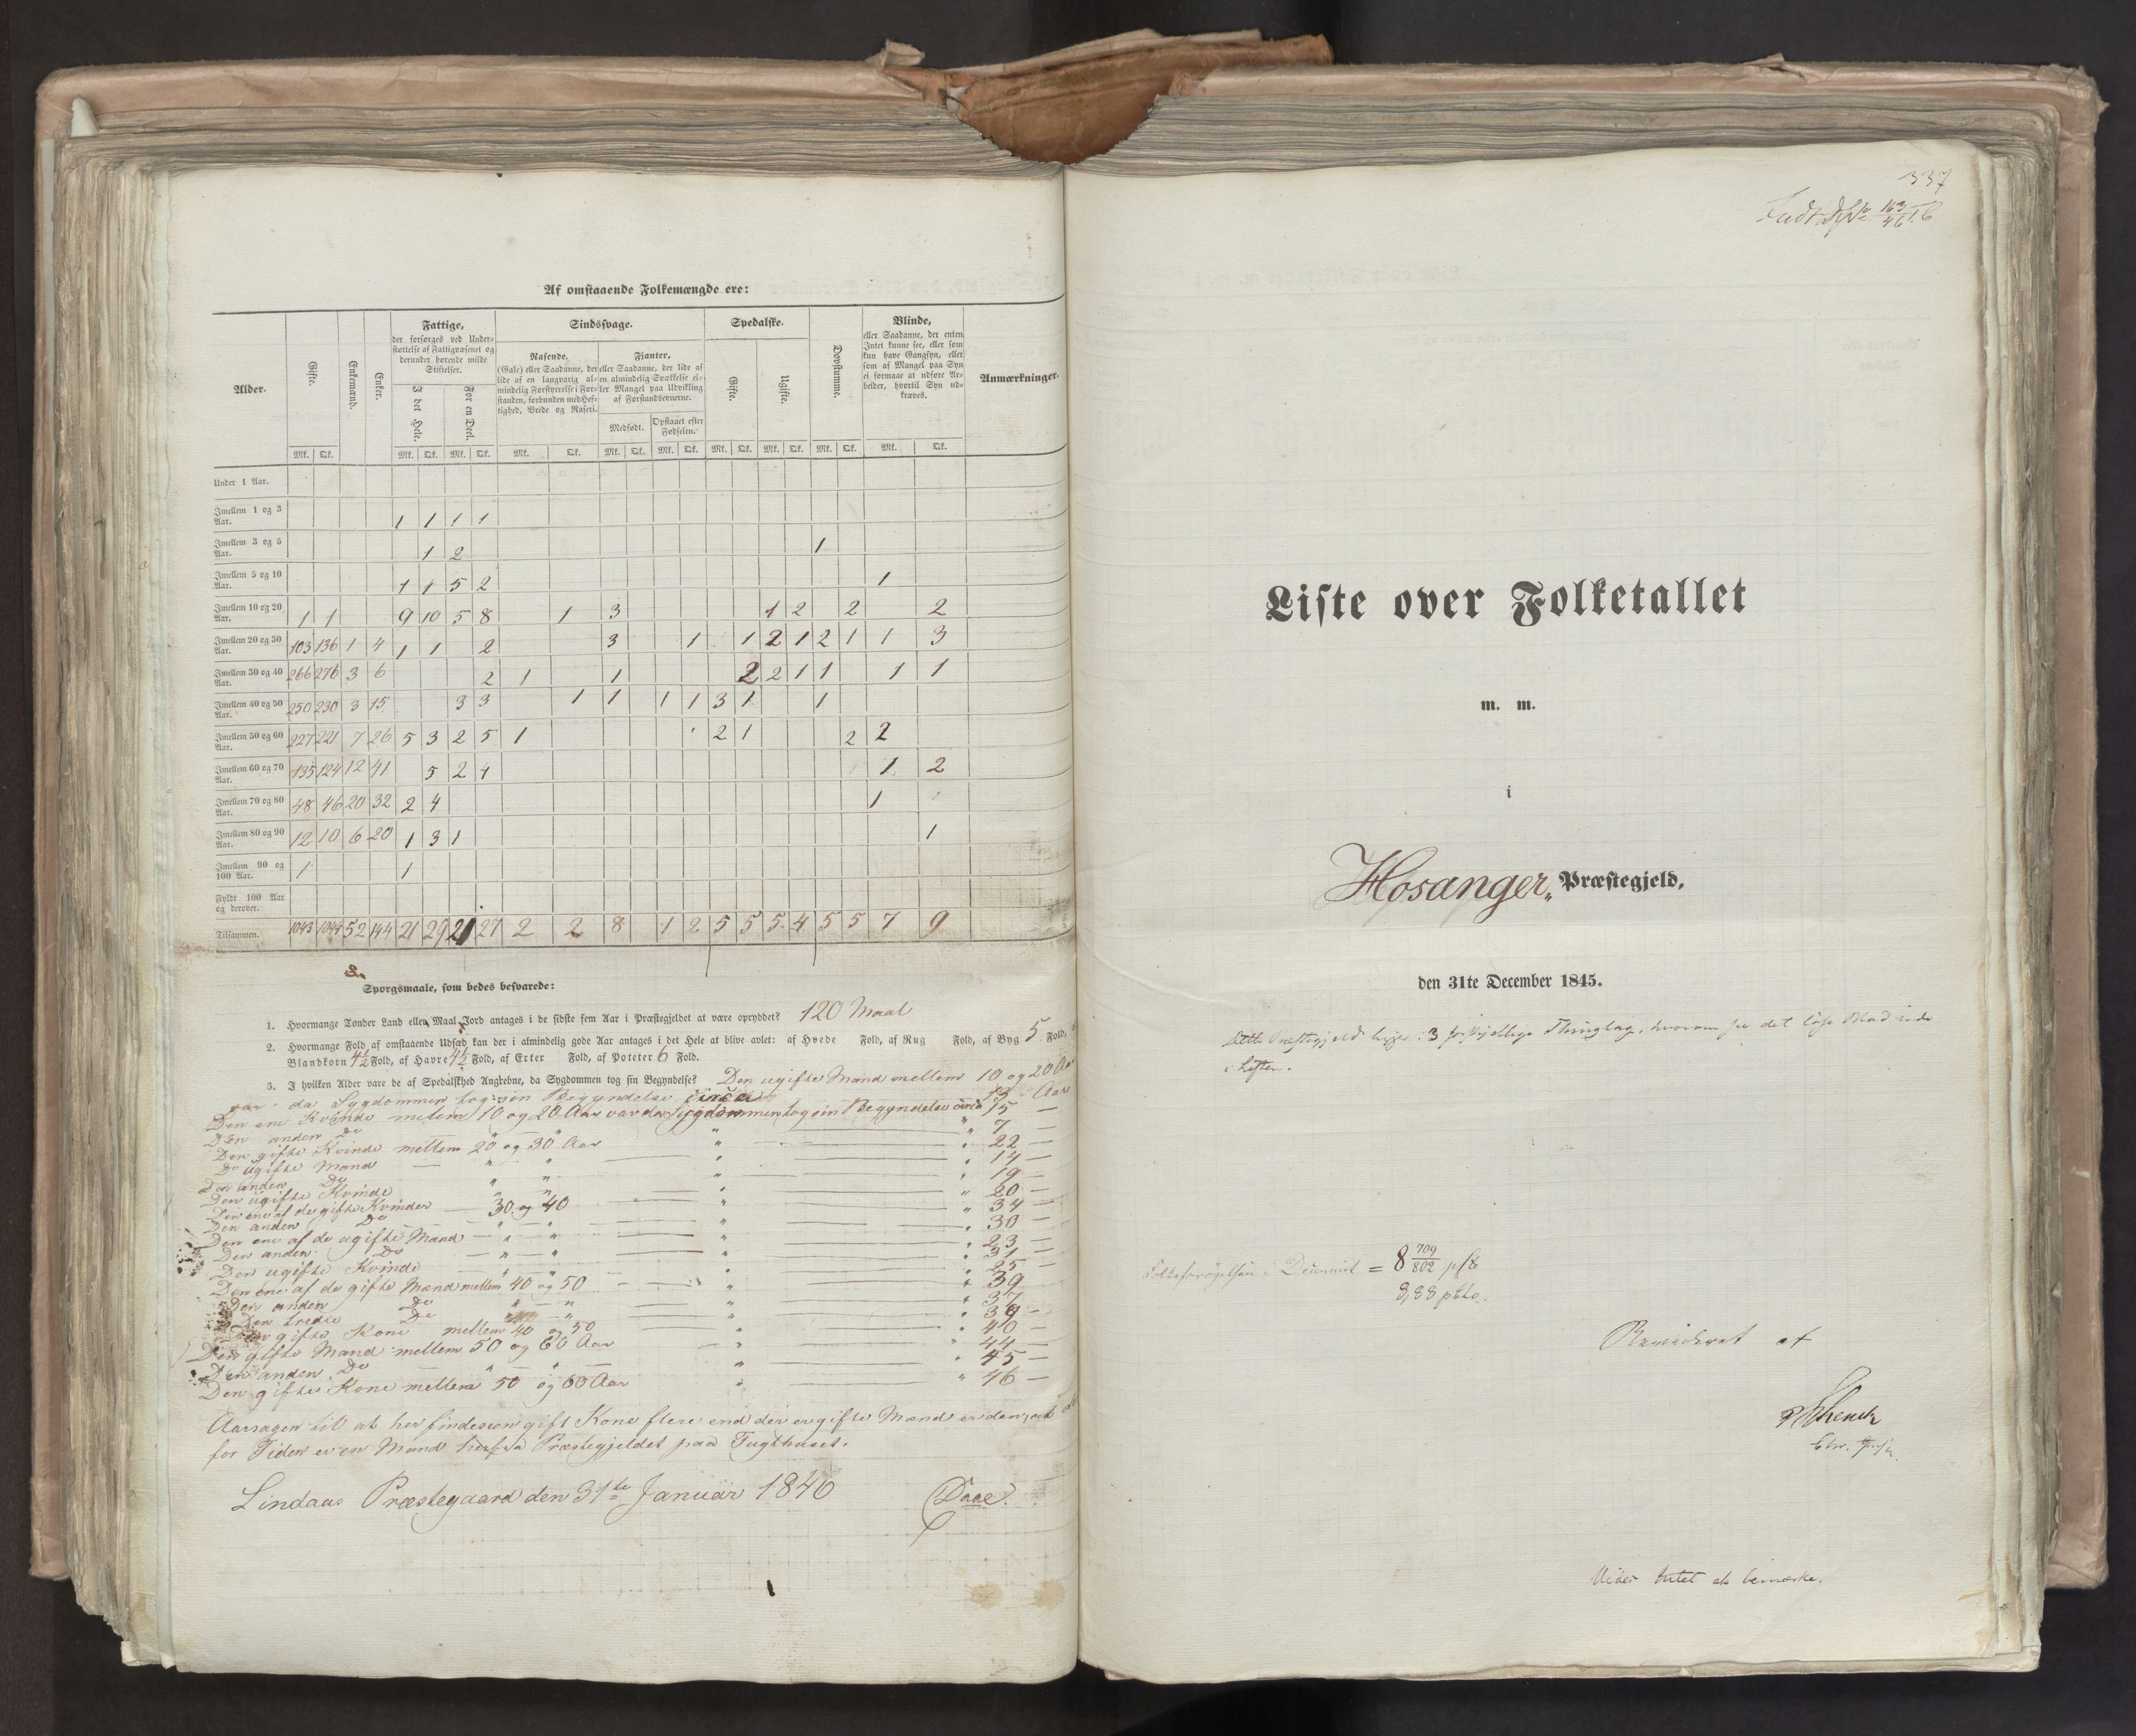 Af omstaaende Folkemængde ere:
Alder.
Gifte.
Enkemænd.
Enker.
Fattige,
der forsørges ved Under-
støttelse af Fattigvæsenet og
derunder hørende milde
Stiftelser.
I det Hele.
For en Deel.
Sindssvage.
Rasende,
(Gale) eller Saadanne, der
lide af en langvarig al-
mindelig Forstyrrelse i For-
standen, forbunden med Hef-
tighed, Vrede og Raseri.
Fjanter,
eller Saadanne, der lide af
en almindelig Svækkelse el-
ler Mangel paa Udvikling
af Forstandsevnerne.
Medfødt.
Opstaaet efter
Fødselen.
Spedalske.
Gifte.
Ugifte.
Døvstumme.
Blinde,
eller Saadanne, der enten
Intet kunne see, eller som
kun have Gangsyn, eller
som af Mangel paa Syn
ei formaae at udføre Ar-
beider, hvortil Syn ud-
kræves.
Anmærkninger.
Mk. Qk. Mk. Qk. Mk. Qk. Mk. Qk. Mk. Qk. Mk. Qk. Mk. Qk. Mk. Qk. Mk. Qk. Mk. Qk.
Under 1 Aar.
Imellem 1 og 3 Aar. 1 1 1 1
Imellem 3 og 5 Aar. 1 2 1
Imellem 5 og 10 Aar. 1 1 5 2 1
Imellem 10 og 20 Aar. 1 1 9 10 5 8 1 3 1 2 2 2
Imellem 20 og 30 Aar. 103 136 1 4 1 1 2 3 1 1 2 1 2 1 1 3
Imellem 30 og 40 Aar. 266 276 3 6 2 1 1 2 2 1 1 1 1
Imellem 40 og 50 Aar. 250 230 3 15 3 3 1 1 1 1 3 1 1
Imellem 50 og 60 Aar. 227 221 7 26 5 3 2 5 1 2 1 2 2
Imellem 60 og 70 Aar. 135 124 12 41 5 2 4 1 2
Imellem 70 og 80 Aar. 48 46 20 32 2 4 1
Imellem 80 og 90 Aar. 12 10 6 20 1 3 1 1
Imellem 90 og 100 Aar. 1 1
Fyldt 100 Aar og derover.
Tilsammen. 1043 1044 52 144 21 29 21 27 2 2 8 1 2 5 5 5 4 5 5 7 9
Spørgsmaale, som bedes besvarede:
1. Hvormange Tønder Land eller Maal Jord antages i de sidste fem Aar i Præstegjeldet at være opryddet? 120 Maal
2. Hvormange Fold af omstaaende Udsæd kan der i almindelig gode Aar antages i det Hele at blive avlet: af Hvede Fold, af Rug Fold, af Byg 5 Fold,
Blandkorn 4½ Fold, af Havre 4½ Fold, af Erter Fold, af Poteter 6 Fold.
3. I hvilken Alder vare de af Spedalskhed Angrebne, da Sygdommen tog sin Begyndelse? Den ugifte Mand mellem 10 og 20 Aar
var da Sygdommen tog sin Begyndelse circa 13 Aar
Den ene Kvinde melem 10 og 20 Aar var da Sygdommen tog sin Begyndelse circa 15 —
Den anden Do 7 —
Den gifte Kvinde mellem 20 og 30 Aar 22 —
Do ugifte Mand 14 —
Den anden Do 19 —
Den ugifte Kvinde 20 —
Den ene af de gifte Kvinder 30 og 40 34 —
Den anden Do 30 —
Den ene af de ugifte Mænd 23 —
Den anden Do 31 —
Den ugifte Kvinde 25 —
Den ene af de gifte Mænd mellem 40 og 50 39
Den anden Do 37
Den tredie Do 39 —
Den gifte Kone mellem 40 og 50 40 —
Den gifte Mand mellem 50 og 60 Aar 44 —
Den anden Do 45 —
Den gifte Kone mellem 50 og 60 Aar 46 —
Aarsagen til at her findes een gift Kone flere end der er gifte Mænd er den, at
for Tiden er en Mand herfra Præstegjeldet paa Tugthuset.
Lindaas Præstegaard den 31te Januar 1846 Daae.
337
163/46
Liste over Folketallet
m. m.
i
Hosanger Præstegjeld,
den 31te December 1845.
Dette Præstegjeld ligger i 3 forskjellige Thinglag, hvorom see det løse Blad inde
i Listen.
Folkeforøgelsen i Decenniet = 8 709/802 pCt
8,88 pCto.
Revideret af
Schenck
Videre Intet at bemærke.